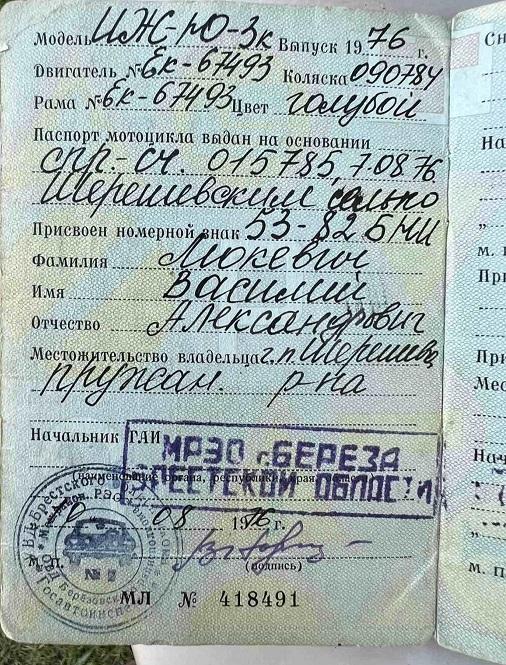 Модель ИЖ-Ю-3к Выпуск 1976 г.
Двигатель № Ек-67493 Коляска 090784
Рама № Ек-67493 Цвет голубой
Паспорт мотоцикла выдан на основании
спр-сч. 015785, 7.08.76.
Шерешевским сельпо
Присвоен номерной знак 53-82 БМИ
Фамилия Мокевич
Имя Василий
Отчество Александрович
Местожительство владельца г.п. Шерешево
пружан. р-на
Начальник ГАИ
МРЭО г. БЕРЕЗА
БРЕСТСКОЙ ОБЛАСТИ
(наименование органа, республики, края,
08 1976 г.
М. П.
(подпись)
№ 2
МЛ № 418491
Сн
На
„
м.
При
При
Мес
Нач
„
м. п